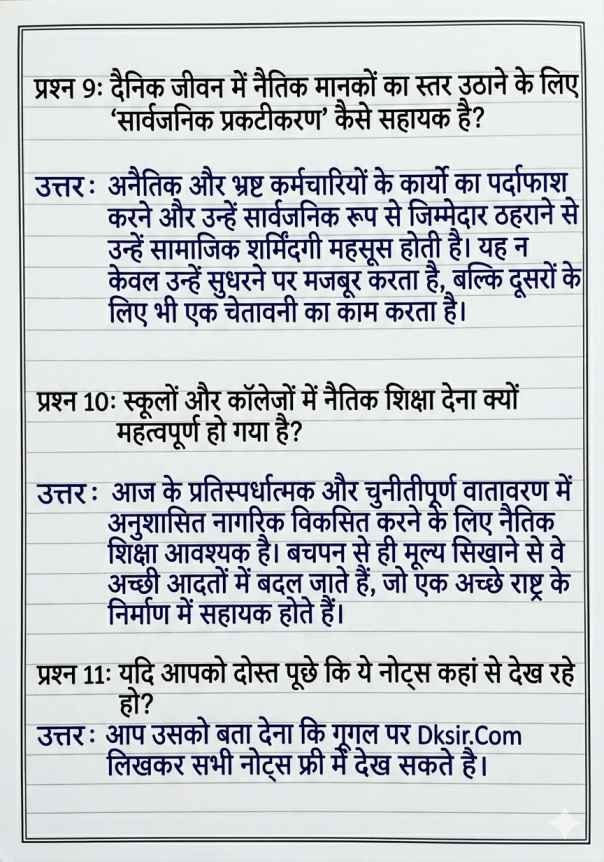 प्रश्न 9: दैनिक जीवन में नैतिक मानकों का स्तर उठाने के लिए
‘सार्वजनिक प्रकटीकरण’ कैसे सहायक है?
उत्तर : अनैतिक और भ्रष्ट कर्मचारियों के कार्यो का पर्दाफाश
करने और उन्हें सार्वजनिक रूप से जिम्मेदार ठहराने से
उन्हें सामाजिक शर्मिंदगी महसूस होती है। यह न
केवल उन्हें सुधरने पर मजबूर करता है, बल्कि दूसरों के
लिए भी एक चेतावनी का काम करता है।
प्रश्न 10: स्कूलों और कॉलेजों में नैतिक शिक्षा देना क्यों
महत्वपूर्ण हो गया है?
उत्तर : आज के प्रतिस्पर्धात्मक और चुनीतीपूर्ण वातावरण में
अनुशासित नागरिक विकसित करने के लिए नैतिक
शिक्षा आवश्यक है। बचपन से ही मूल्य सिखाने से वे
अच्छी आदतों में बदल जाते हैं, जो एक अच्छे राष्ट्र के
निर्माण में सहायक होते हैं।
प्रश्न 11: यदि आपको दोस्त पूछे कि ये नोट्स कहां से देख रहे
हो?
उत्तर : आप उसको बता देना कि गूगल पर Dksir.Com
लिखकर सभी नोट्स फ्री में देख सकते है।